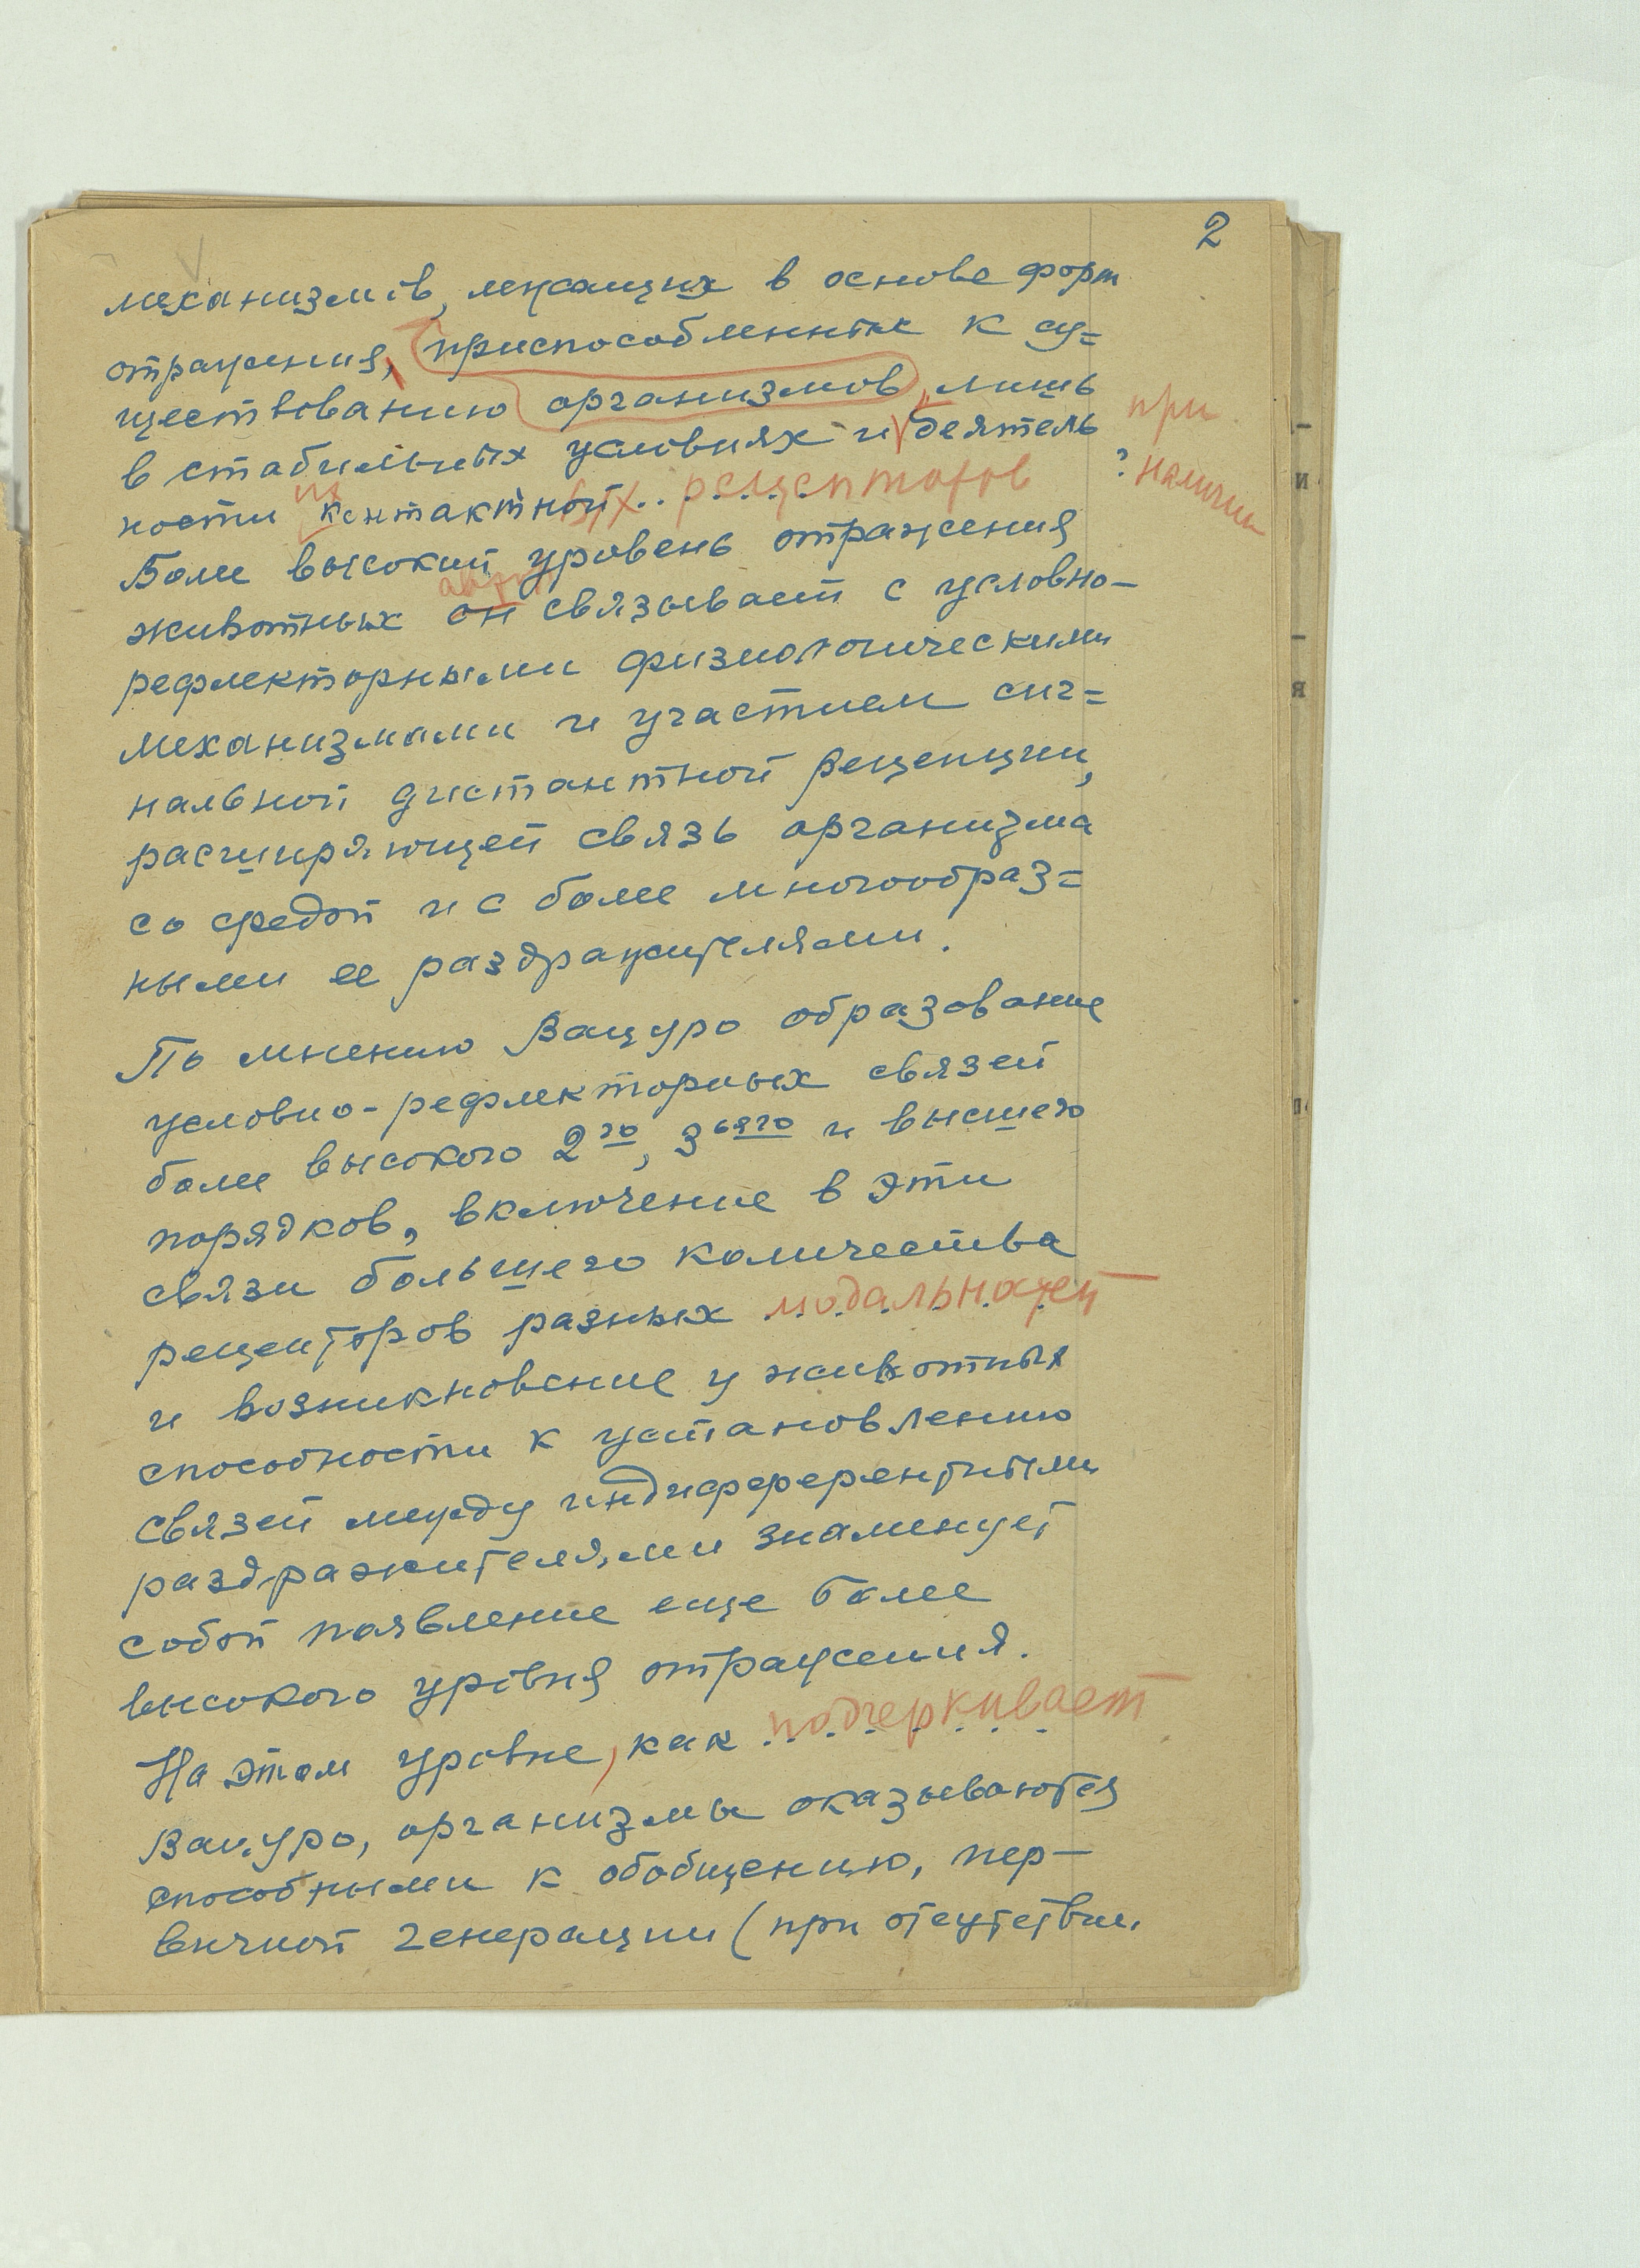 2
механизмов, лежащих в основе форм
отражения, приспособленные к су=
ществованию организмов лишь
в стабильных условиях и деятель при
ности их контактной ых . . рецепторов ? наличии
Более высокий уровень отражения
животных он связывает с условно-
рефлекторными физиологическими
механизмами и участием сиг=
нальной дистантной рецепции,
расширяющей связь организма
со средой и с более многообраз=
ными ее раздражителями.
По мнению Вацуро образование
условно-рефлекторных связей
более высокого 2го, 3ьяго и высшего
порядков, включение в эти
связи большего количества
рецепторов разных модальностей
и возникновение у животных
способности к установлению
связей между индифферентными
раздражителями знаменует
собой появление еще более
высокого уровня отражения.
На этом уровне, как подчеркивает
Вацуро, организмы оказываются
способными к обобщению, пер-
вичной генерации (при отсутствии